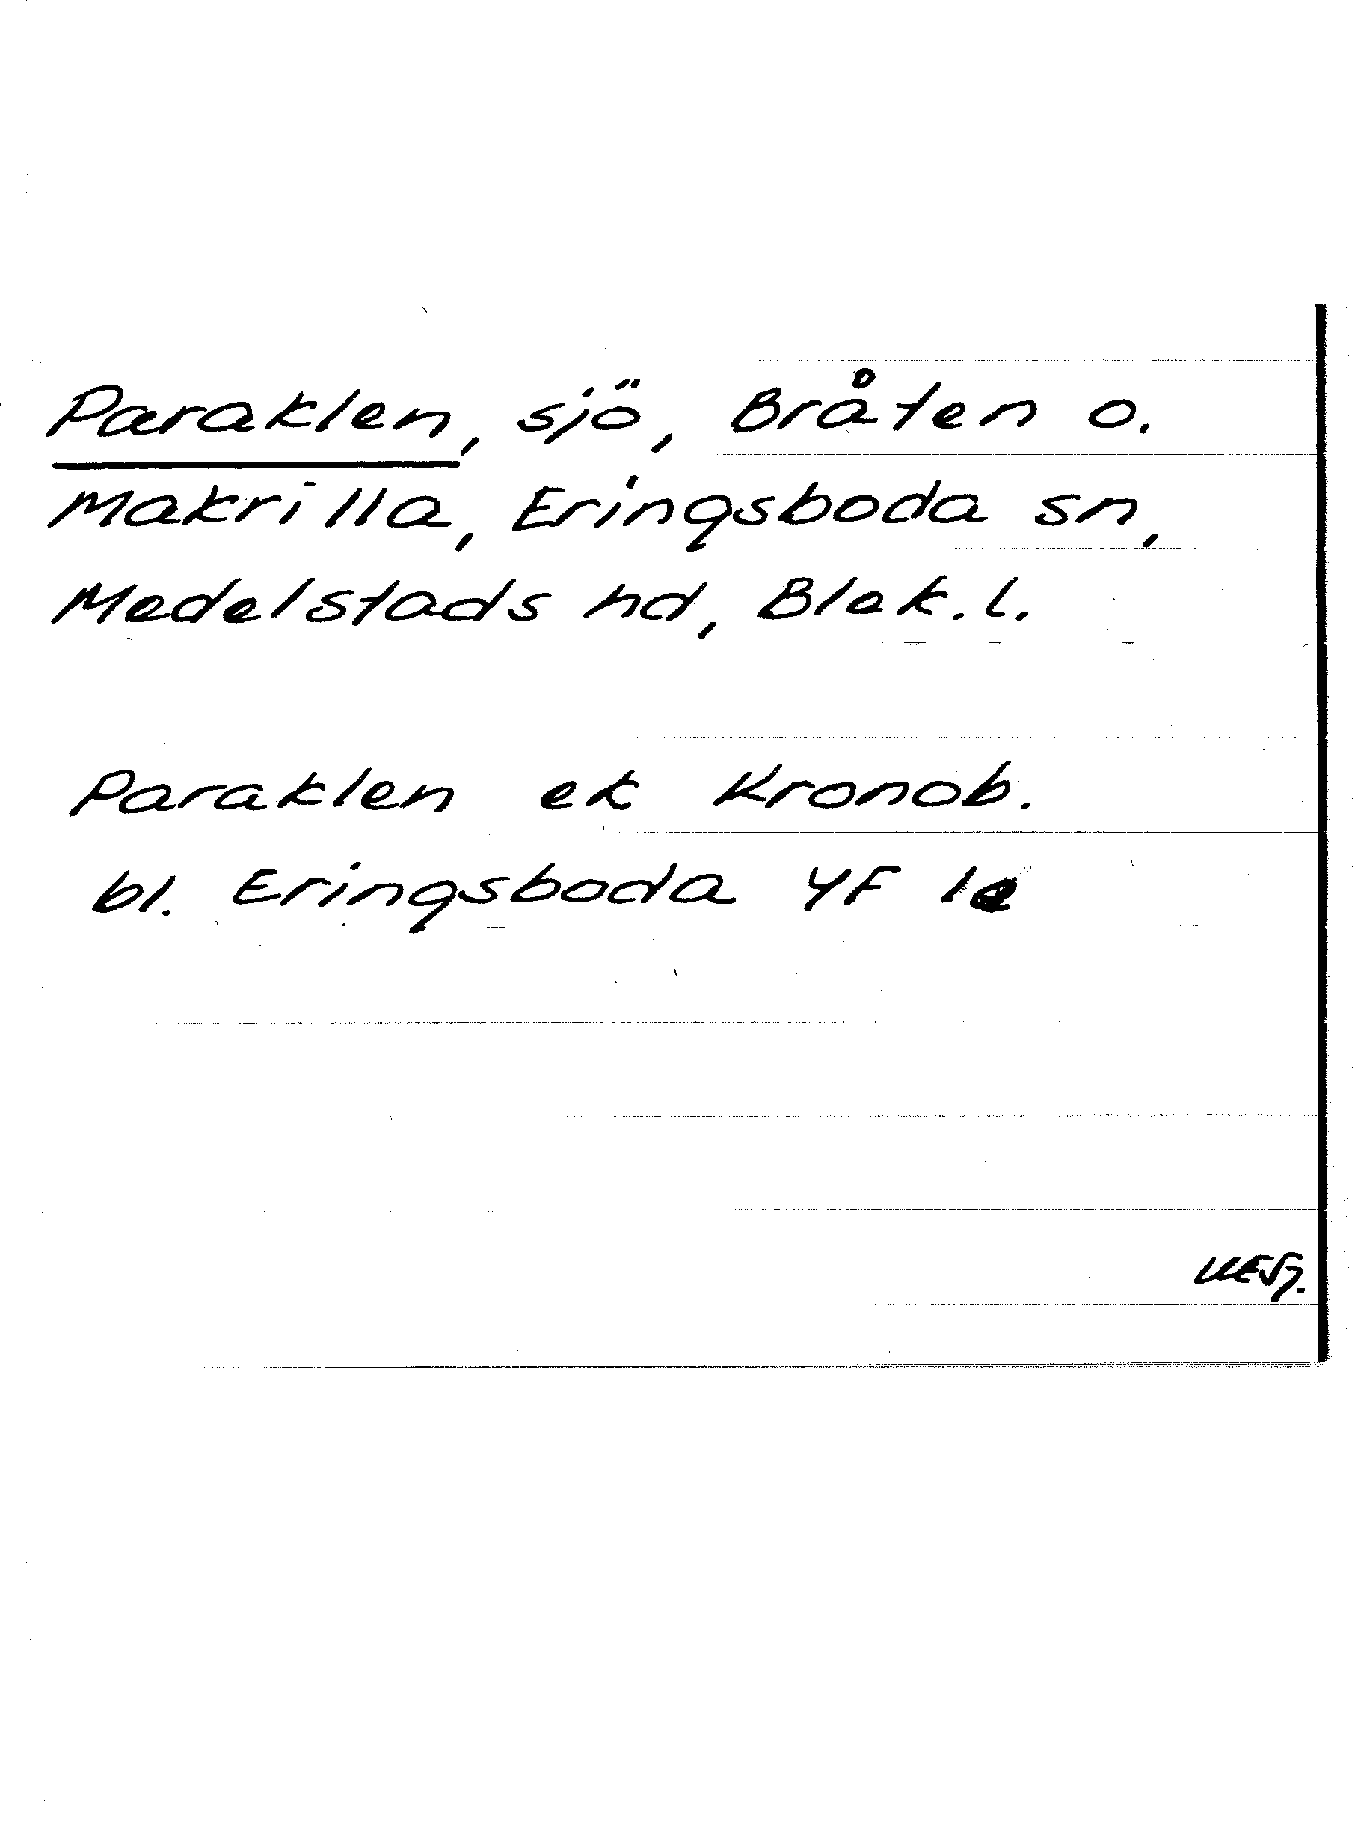 Paraklen, sjö, Bråten o.
Makrilla, Eringsboda sn,
Medelstads hd, Blek. l.
Paraklen ek Kronob.
bl. Eringsboda YF 1e